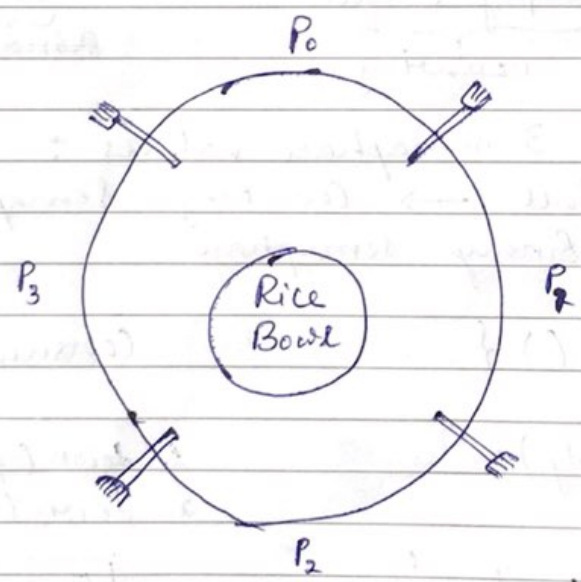 P₀
P₃
Rice
Bowl
P₁
P₂